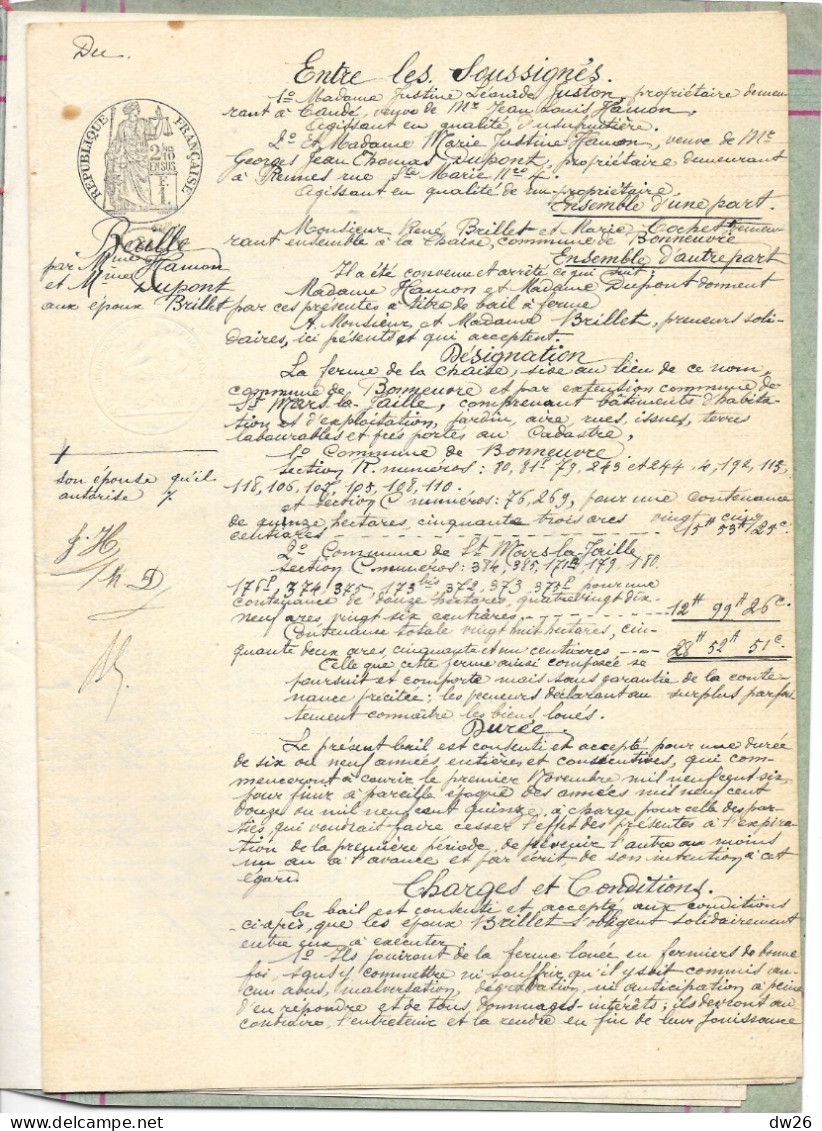 Du
Entre les Soussignés.
1º Madame Justine Léonide Juston, propriétaire demeu-
rant à Candé, veuve de Mr Jean Louis Hamon,
Agissant en qualité d'usufruitière.
2º Et Madame Marie Justine Hamon, veuve de Mr
Georges Jean Thomas Dupont, propriétaire demeurant
à Rennes rue Ste Marie Nº 4.
Agissant en qualité de nu-propriétaire
Ensemble d'une part.
RÉPUBLIQUE FRANÇAISE
2/10
EN SUS
1
Monsieur René Brillet et Marie Cochet demeu-
rant ensemble à la Chaise, commune de Bonneuvre
Ensemble d'autre part
Bail
par Mme Hamon
et Mme Dupont
aux époux Brillet
Il a été convenu et arrêté ce qui suit:
Madame Hamon et Madame Dupont donnent
par ces présentes à titre de bail à ferme
A Monsieur et Madame Brillet, preneurs soli-
daires, ici présents et qui acceptent.
Désignation
La ferme de la Chaise, sise au lieu de ce nom,
commune de Bonneuvre et par extension commune de
St Mars-la-Jaille, comprenant bâtiments d'habita-
tion et d'exploitation, jardin, aire, rues, issues, terres
labourables et prés portés au Cadastre,
1º Commune de Bonneuvre
section R. numéros: 80, 81p, 79, 243 et 244, 4, 192, 115,
118, 106, 107, 105, 108, 110.
et Section C numéros: 76, 269, pour une contenance
de quinze hectares, cinquante trois ares vingt cinq
centiares 15H 53A 25c.
son épouse qu'il
autorise
J. H
M. D
2º Commune de St Mars-la-Jaille
Section C numéros: 384, 385, 171, 179, 180
176p, 374, 375, 173bis, 372, 373, 375p pour une
contenance de douze hectares, quatre vingt dix
neuf ares, vingt six centiares, 12H 99A 26c.
Contenance totale vingt huit hectares, cin-
quante deux ares, cinquante et un centiares 28H 52A 51c.
Telle que cette ferme ainsi composée se
poursuit et comporte mais sans garantie de la conte-
nance précitée; les preneurs déclarant au surplus parfai-
tement connaître les biens loués.
Durée.
Le présent bail est consenti et accepté pour une durée
de six ou neuf années entières et consécutives, qui com-
menceront à courir le premier Novembre mil neuf cent six
pour finir à pareille époque des années mil neuf cent
douze ou mil neuf cent quinze, à charge pour celle des par-
ties, qui voudrait faire cesser l'effet des présentes à l'expira-
tion de la première période, de prévenir l'autre au moins
un an à l'avance et par écrit de son intention à cet
égard.
Charges et Conditions.
Ce bail est consenti et accepté aux conditions
ci-après, que les époux Brillet s'obligent solidairement
entre eux à exécuter.
1º Ils jouiront de la ferme louée en fermiers de bonne
foi sans y commettre ni souffrir qu'il y soit commis au-
cun abus, malversation, dégradation, ni anticipation à peine
d'en répondre et de tous dommages-intérêts; ils devront au
contraire, l'entretenir et la rendre en fin de leur jouissance
dw26